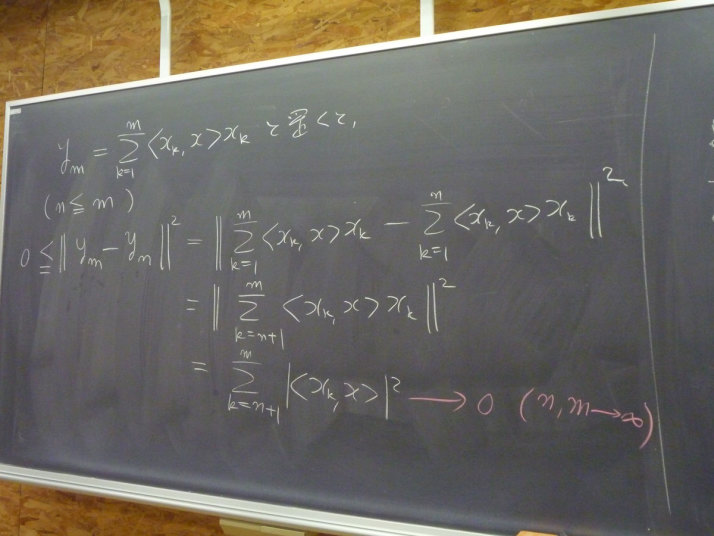 y_m = \sum_{k=1}^{m} <x_k, x> x_k と置くと,
(n ≦ m)
0 ≦ || y_m - y_n ||^2 = || \sum_{k=1}^{m} <x_k, x> x_k - \sum_{k=1}^{n} <x_k, x> x_k ||^2
= || \sum_{k=n+1}^{m} <x_k, x> x_k ||^2
= \sum_{k=n+1}^{m} |<x_k, x>|^2 → 0 (n, m → ∞)